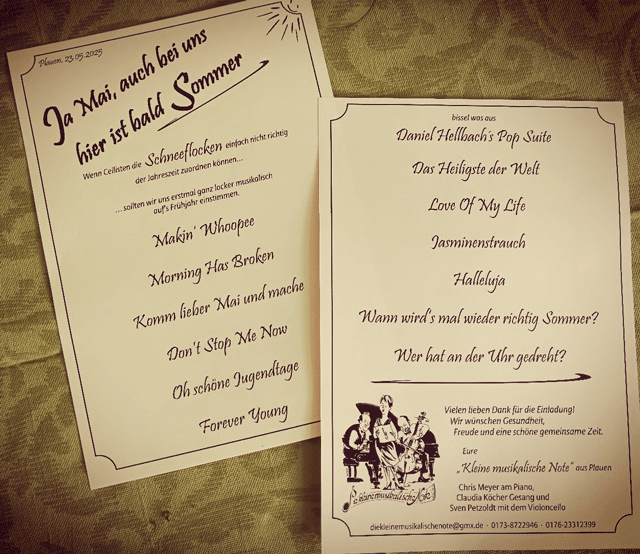 Plauen, 23.05.2025
Ja Mai, auch bei uns
hier ist bald Sommer
Wenn Cellisten die Schneeflocken einfach nicht richtig
der Jahreszeit zuordnen können...
... sollten wir uns erstmal ganz locker musikalisch
auf's Frühjahr einstimmen.
Makin' Whoopee
Morning Has Broken
Komm lieber Mai und mache
Don't Stop Me Now
Oh schöne Jugendtage
Forever Young
bissel was aus
Daniel Hellbach's Pop Suite
Das Heiligste der Welt
Love Of My Life
Jasminenstrauch
Halleluja
Wann wird's mal wieder richtig Sommer?
Wer hat an der Uhr gedreht?
Vielen lieben Dank für die Einladung!
Wir wünschen Gesundheit,
Freude und eine schöne gemeinsame Zeit.
Eure
„Kleine musikalische Note" aus Plauen
Chris Meyer am Piano,
Claudia Köcher Gesang und
Sven Petzoldt mit dem Violoncello
Die kleine musikalische Note
diekleinemusikalischenote@gmx.de · 0173-8722946 · 0176-23312399